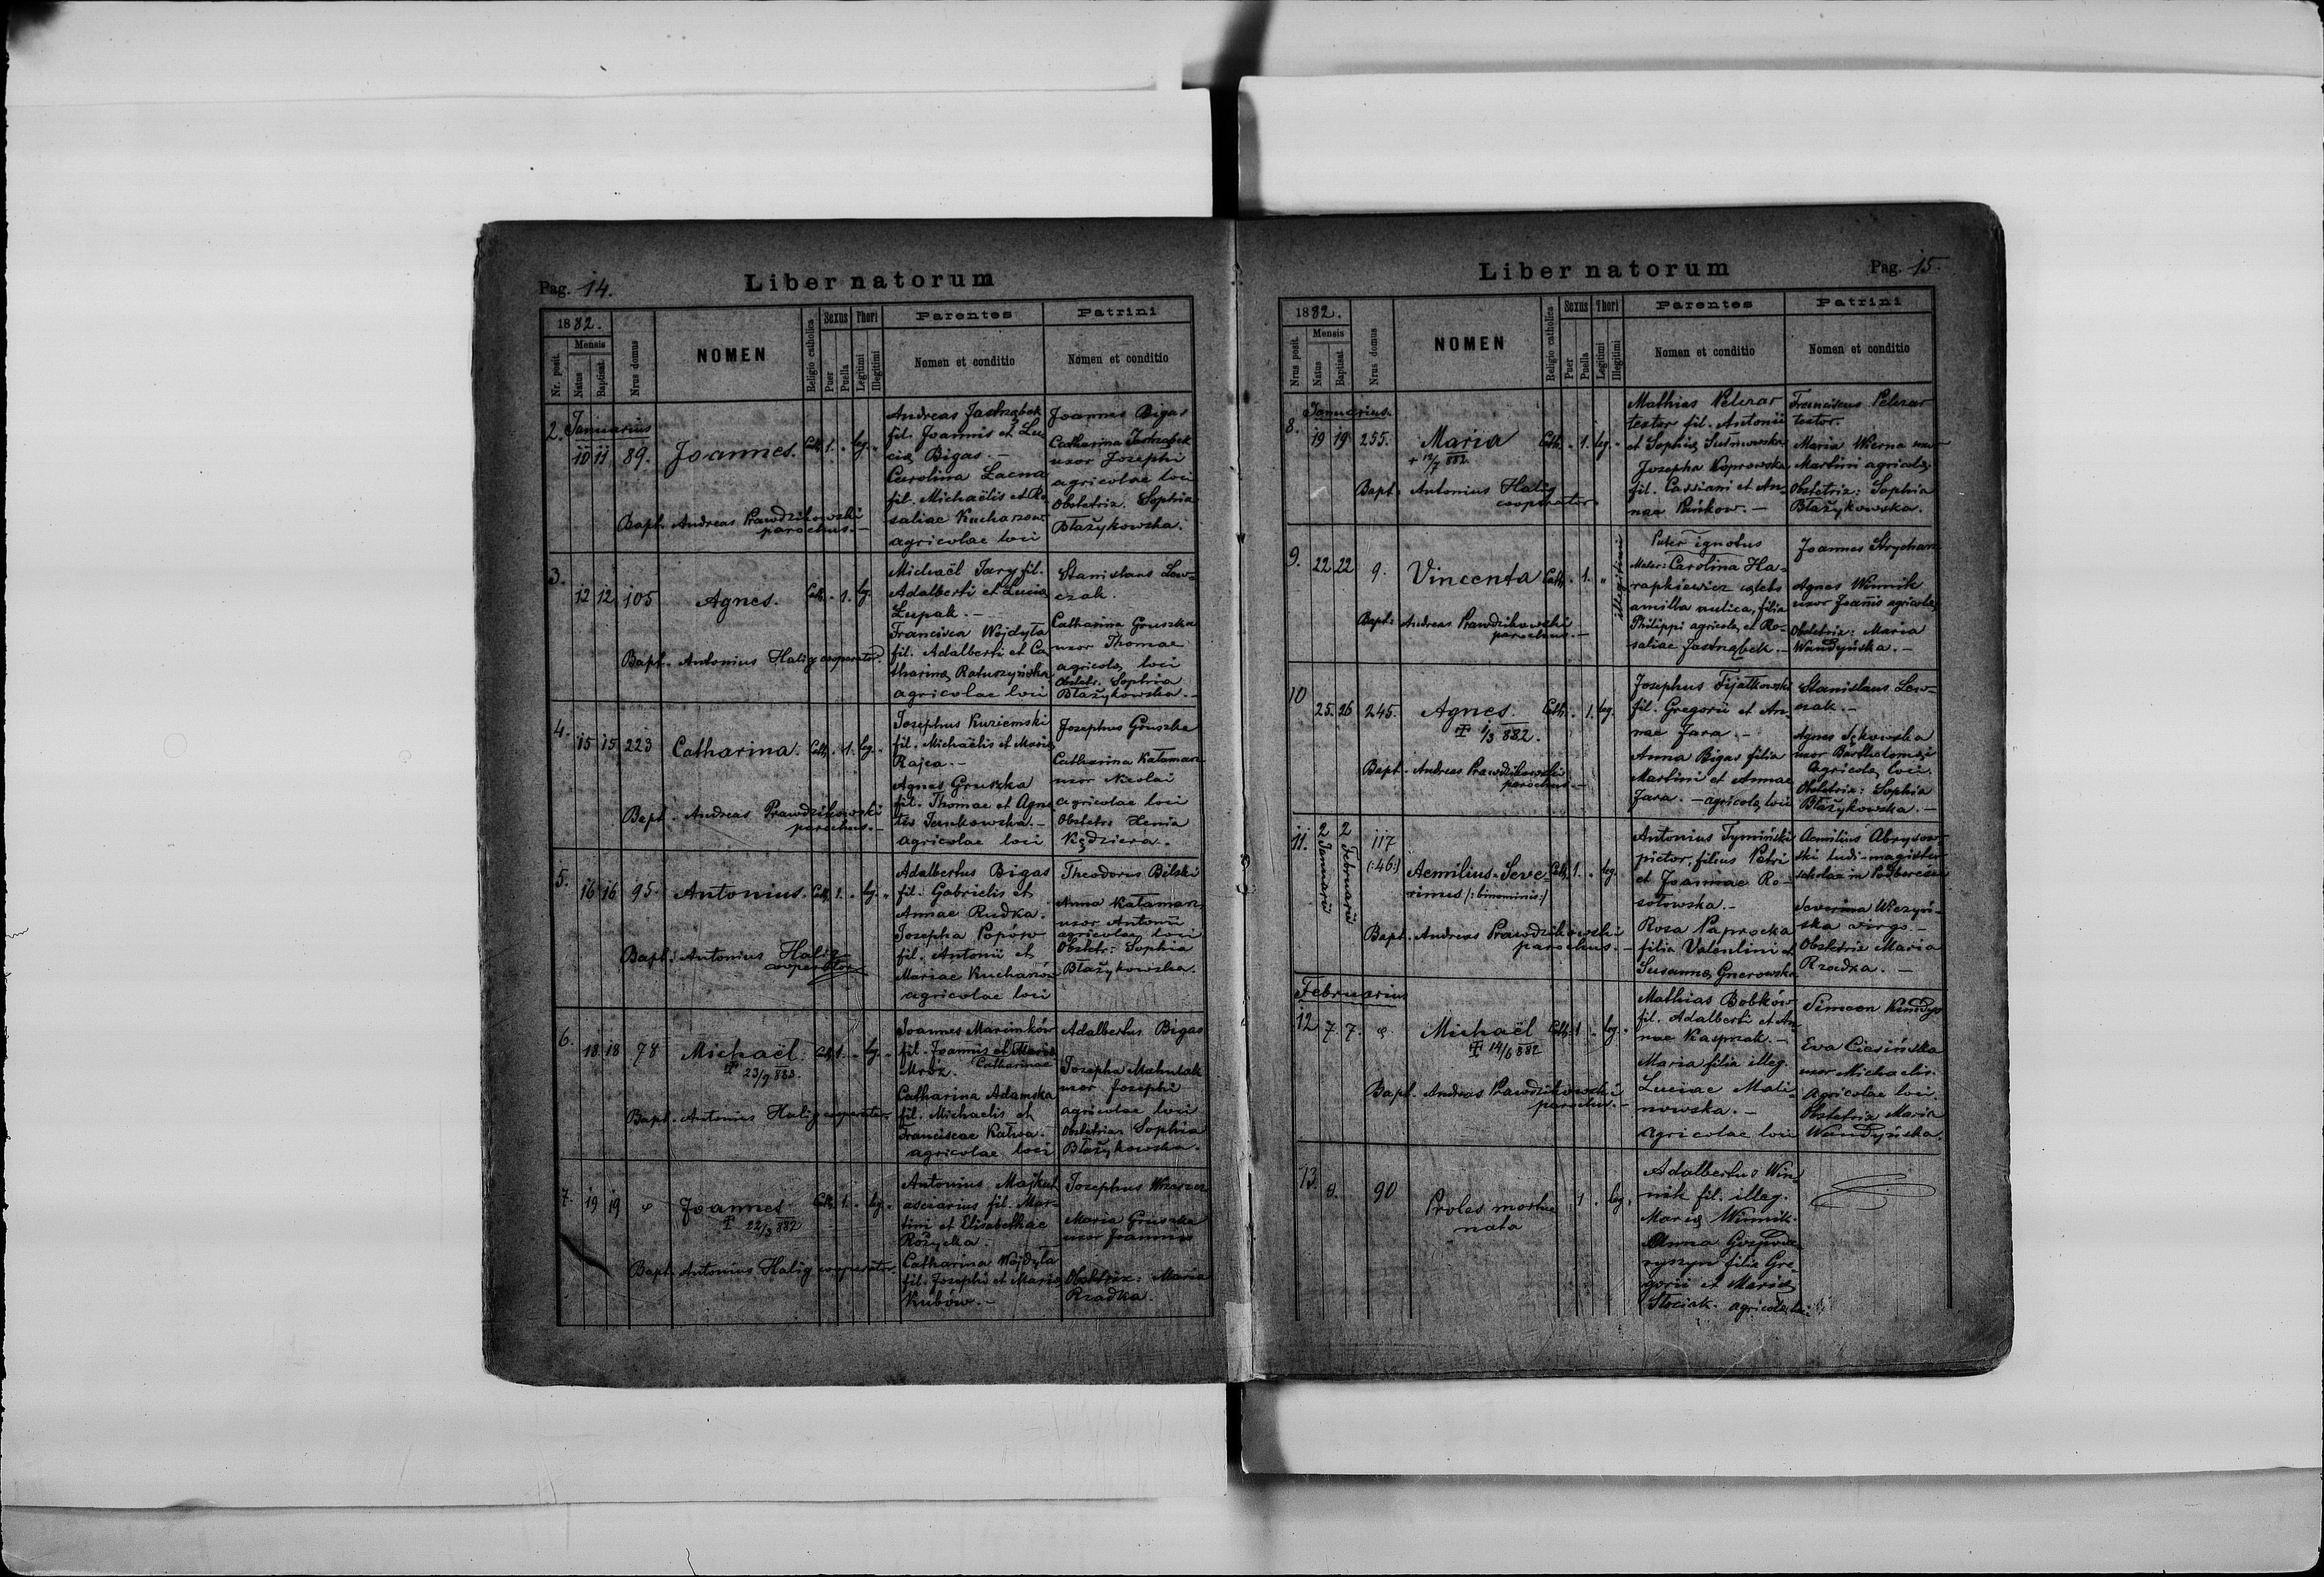 Pag. 14.
Liber natorum
1882.
Nr. posit.
Mensis
Natus
Baptisat.
Nrus domus
NOMEN
Religio catholica
Sexus
Puer
Puella
Thori
Legitimi
Illegitimi
Parentes
Nomen et conditio
Patrini
Nomen et conditio
2. Januarius
10 11 89. Joannes. Cath. 1. " leg. "
Bapt. Andreas Prawdzikowski
parochus. —
Andreas Jastrząbek
fil. Joannis et Lu
ciæ Bigas. —
Carolina Lacna
fil. Michaëlis et Ro
saliae Kucharzow
agricolae loci
Joannes Bigas
Catharina Jastrzabek
uxor Josephi
agricolae loci
Obstetrix. Sophia
Błażykowska.
3.
12 12 105 Agnes. Cath. " 1. leg.
Bapt. Antonius Halig cooperator.
Michaël Jary fil.
Adalberti et Luciæ
Łupak. —
Francisca Wojdyła
fil. Adalberti et Ca
tharinæ Ratuszyńska
agricolae loci
Stanislaus Lew=
czak.
Catharina Gruszka
uxor Thomae
agricolæ loci
Obstetr. Sophia
Błażykowska. —
4.
15 15 223 Catharina. Cath. " 1. leg. "
Bapt. Andreas Prawdzikowski
parochus. —
Josephus Kuziemski
fil. Michaëlis et Mariæ
Rajca. —
Agnes Gruszka
fil. Thomae et Agne
tis Jankowska. —
agricolae loci
Josephus Gruszka
Catharina Kałamarz
uxor Nicolai
agricolae loci
Obstetr: Xenia
Kędziera.
5.
16 16 95. Antonius. Cath. 1. " leg. "
Bapt: Antonius Halig
cooperator
Adalbertus Bigas
fil. Gabrielis et
Annae Rudka.
Josepha Popów
fil. Antonii et
Mariae Kucharzów
agricolae loci
Theodorus Bilski
Anna Kałamarz
uxor Antonii
agricolae loci
Obstetr: Sophia
Błażykowska.
6.
18 18 78 Michaël. Cath. 1. " leg. "
23/9 883.
Bapt. Antonius Halig cooperator
Joannes Marcinków
fil. Joannis et Mariæ
Mróz. Catharinae
Catharina Adamska
fil. Michaelis et
Franciscae Kałwa. —
agricolae loci
Adalbertus Bigas
Josepha Machulak
uxor Josephi
agricolae loci
Obstetrix Sophia
Błażykowska.
7.
19 19 Joannes Cath. 1. " leg. "
22/3 882
Bapt. Antonius Halig cooperator.
Antonius Majkut
asciarius fil. Mar=
tini et Elisabethae
Różycka.
Catharina Wojdyła
fil. Josephi et Mariæ
Kubów. —
Josephus
Maria Gruszka
uxor Joannis
Obstetrix: Maria
Rzadka.
Liber natorum
Pag. 15.
1882.
Nrus posit.
Mensis
Natus
Baptisat
Nrus domus
NOMEN
Religio catholica
Sexus
Puer
Puella
Thori
Legitimi
Illegitimi
Parentes
Nomen et conditio
Patrini
Nomen et conditio
Januarius.
8.
19 19 255. Maria Cath. " 1. leg. "
+ 12/7 882
Bapt. Antonius Halig
cooperator.
Mathias Pelczar
textor fil. Antonii
et Sophiæ
Josepha Koprowska
fil. Cassiani et An=
nae —
Franciscus Pelczar
textor.
Maria Wierna uxor
Martini agricolæ.
Obstetrix: Sophia
Błażykowska.
9.
22 22 9. Vincenta Cath. " 1. " illegitimi
Bapt: Andreas Prawdzikowski
parochus. —
Pater ignotus
Mater: Carolina Ha=
rapkiewicz caelebs
amilla aulica, filia
Philippi agricolæ et Ro=
saliae Jastrząbek. —
Joannes Strychar
Agnes Winnik
uxor Joannis agricolæ
Obstetrix: Maria
Wandyńska. —
10
25. 26 245. Agnes. Cath. " 1. leg.
1/3 882.
Bapt. Andreas Prawdzikowski
parochus. —
Josephus Fijałkowski
fil. Gregorii et An=
nae Jara. —
Anna Bigas filia
Martini et Annae
Jara. — agricolæ loci
Stanislaus Lew=
czak. —
Agnes
uxor Bartholomæi
Agricolæ loci.
Obstetrix: Sophia
Błażykowska. —
11. 2 Januarii 2 Februarii 117
(:46:) Aemilius-Seve= Cath. 1. " leg.
rinus /: binominis :/
Bapt. Andreas Prawdzikowski
parochus. —
Antonius Tymiński
pictor, filius Petri
et Joannae Ro=
sołowska. —
Rosa Paprocka
filia Valentini et
Susannæ Gnerowska
Aemilius Abrysow=
ski ludi-magister
scholae in
Severina Wiczyń=
ska virgo. —
Obstetrix Maria
Rzadka. —
Februarius
12 7. 7. Michaël Cath. 1 " leg. "
14/6 882
Bapt. Andreas Prawdzikowski
parochus. —
Mathias Bobków
fil. Adalberti et An=
nae Kasprzak. —
Maria filia illeg.
Luciae Mali=
nowska. —
agricolae loci
Simeon Kundys
Eva Ciasińska
uxor Michaelis.
Agricolae loci.
Obstetrix Maria
Wandyńska.
13.
9. 90 Proles mortue 1 " leg.
nata
Adalbertus Win=
nik fil. illeg.
Mariæ Winnik.
Anna Gospoda=
ryszyn filia Gre=
gorii et Mariæ
Stociak. agricolæ loci